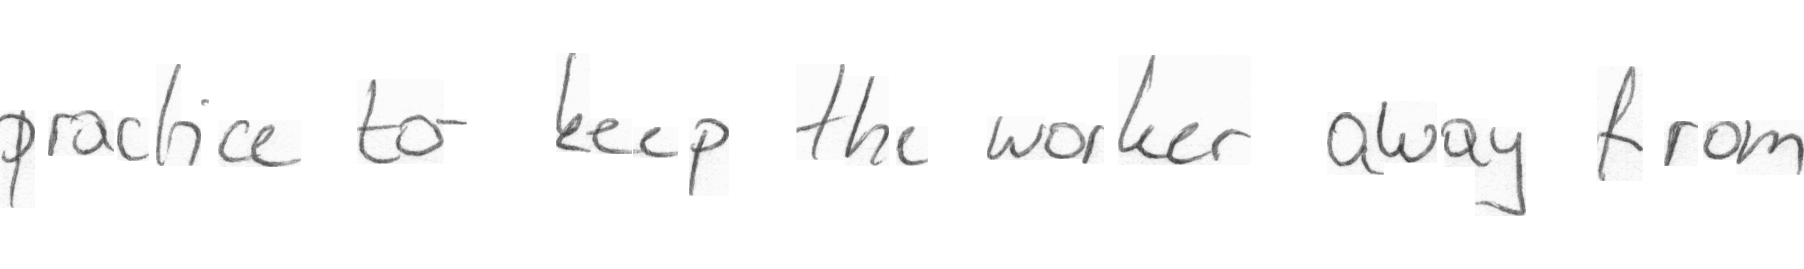 practice to keep the worker away from